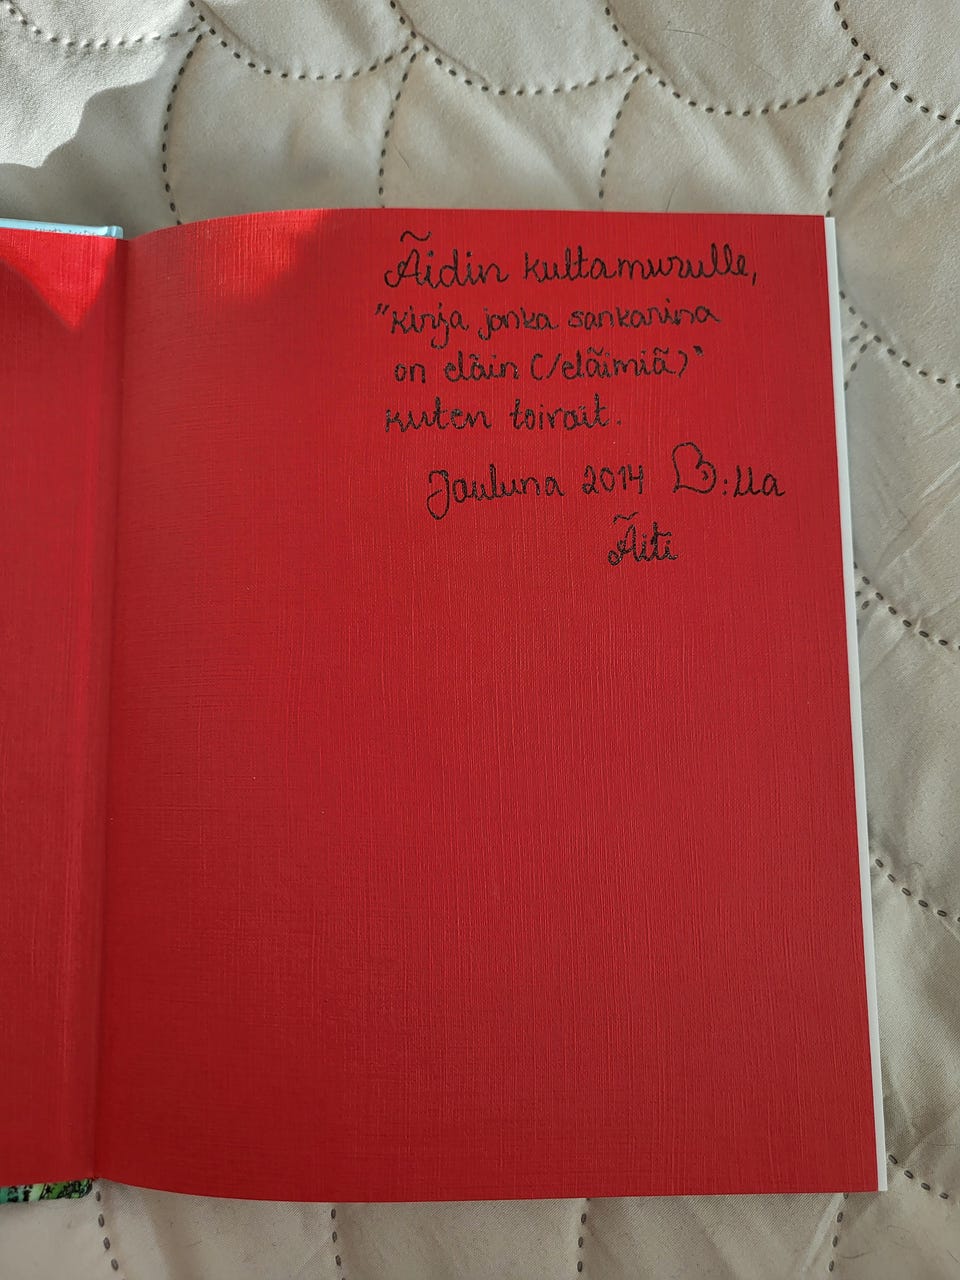 Äidin kultamurulle,
"kirja jonka sankarina
on eläin (/eläimiä)"
kuten toivoit.
Jouluna 2014 ♡:lla
Äiti